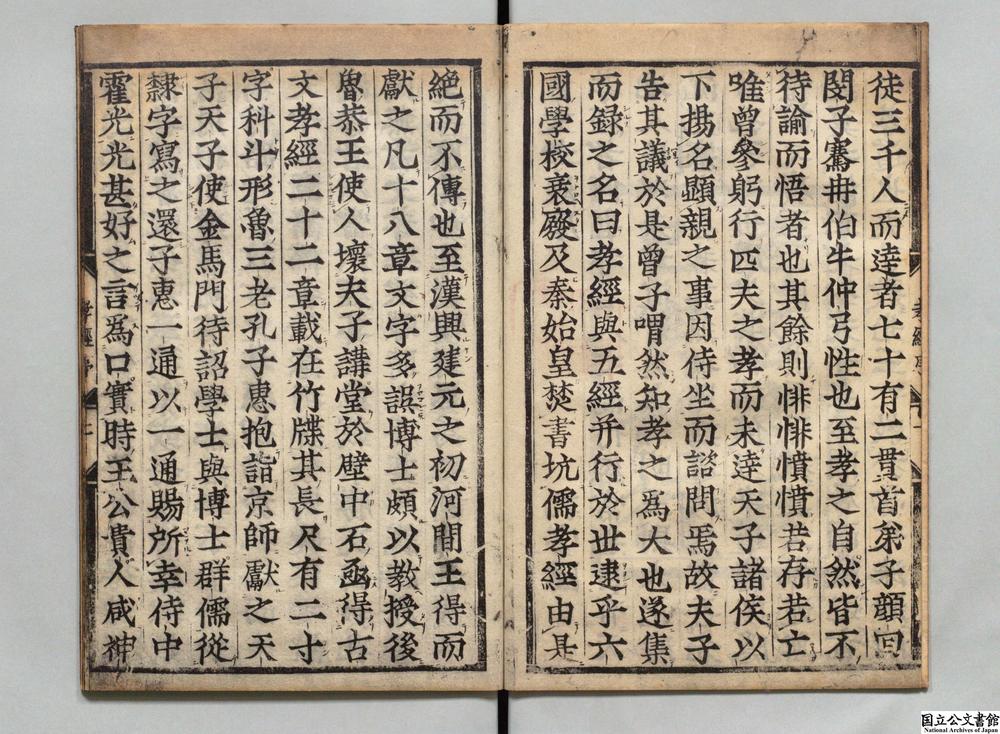 徒三千人而達者七十有二貫首弟子顔回
閔子騫冉伯牛仲弓性也至孝之自然皆不
待諭而悟者也其餘則悱悱憤憤若存若亡
唯曽參躬行匹夫之孝而未達天子諸侯以
下揚名顯親之事因侍坐而諮問焉故夫子
告其議於是曽子喟然知孝之爲大也遂集
而録之名曰孝經與五經并行於世逮乎六
國學校衰廢及秦始皇焚書坑儒孝經由是
絶而不傳也至漢興建元之初河間王得而
獻之凡十八章文字多誤博士頗以教授後
魯恭王使人壞夫子講堂於壁中石凾得古
文孝經二十二章載在竹牒其長尺有二寸
字科斗形魯三老孔子惠抱詣京師獻之天
子天子使金馬門待詔學士與博士群儒從
隸字寫之還子惠一通以一通賜所幸侍中
霍光光甚好之言爲口實時王公貴人咸神
孝經序
国立公文書館
National Archives of Japan